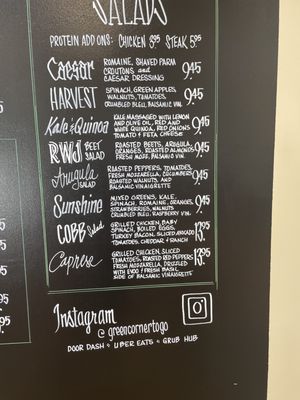 SALADS
PROTEIN ADD ONS: CHICKEN 5.95 STEAK 5.95
Caesar ROMAINE, SHAVED PARM
CROUTONS, AND
CAESAR DRESSING 9.45
HARVEST SPINACH, GREEN APPLES,
WALNUTS, TOMATOES,
CRUMBLED BLEU, BALSAMIC VIN. 9.45
Kale & Quinoa KALE MASSAGED WITH LEMON
AND OLIVE OIL, RED AND
WHITE QUINOA, RED ONIONS
TOMATO & FETA CHEESE 9.45
RWJ BEET SALAD ROASTED BEETS, ARUGULA,
ORANGES, ROASTED ALMONDS
FRESH MOZZ, BALSAMIC VIN. 9.45
Arugula SALAD ROASTED PEPPERS, TOMATOES,
FRESH MOZZARELLA, CUCUMBERS
ROASTED WALNUTS, AND
BALSAMIC VINAIGRETTE 9.45
Sunshine MIXED GREENS, KALE,
SPINACH, ROMAINE, ORANGES,
STRAWBERRIES, WALNUTS
CRUMBLED BLEU, RASPBERRY VIN. 9.45
COBB Salad GRILLED CHICKEN, BABY
SPINACH, BOILED EGGS,
TURKEY BACON, SLICED AVOCADO
TOMATOES, CHEDDAR & RANCH 13.95
Caprese GRILLED CHICKEN, SLICED
TOMATOES, ROASTED RED PEPPERS
FRESH MOZZARELLA, DRIZZLED
WITH EVOO & FRESH BASIL
SIDE OF BALSAMIC VINAIGRETTE 13.95
Instagram
@ greencornertogo
DOOR DASH • UBER EATS • GRUB HUB